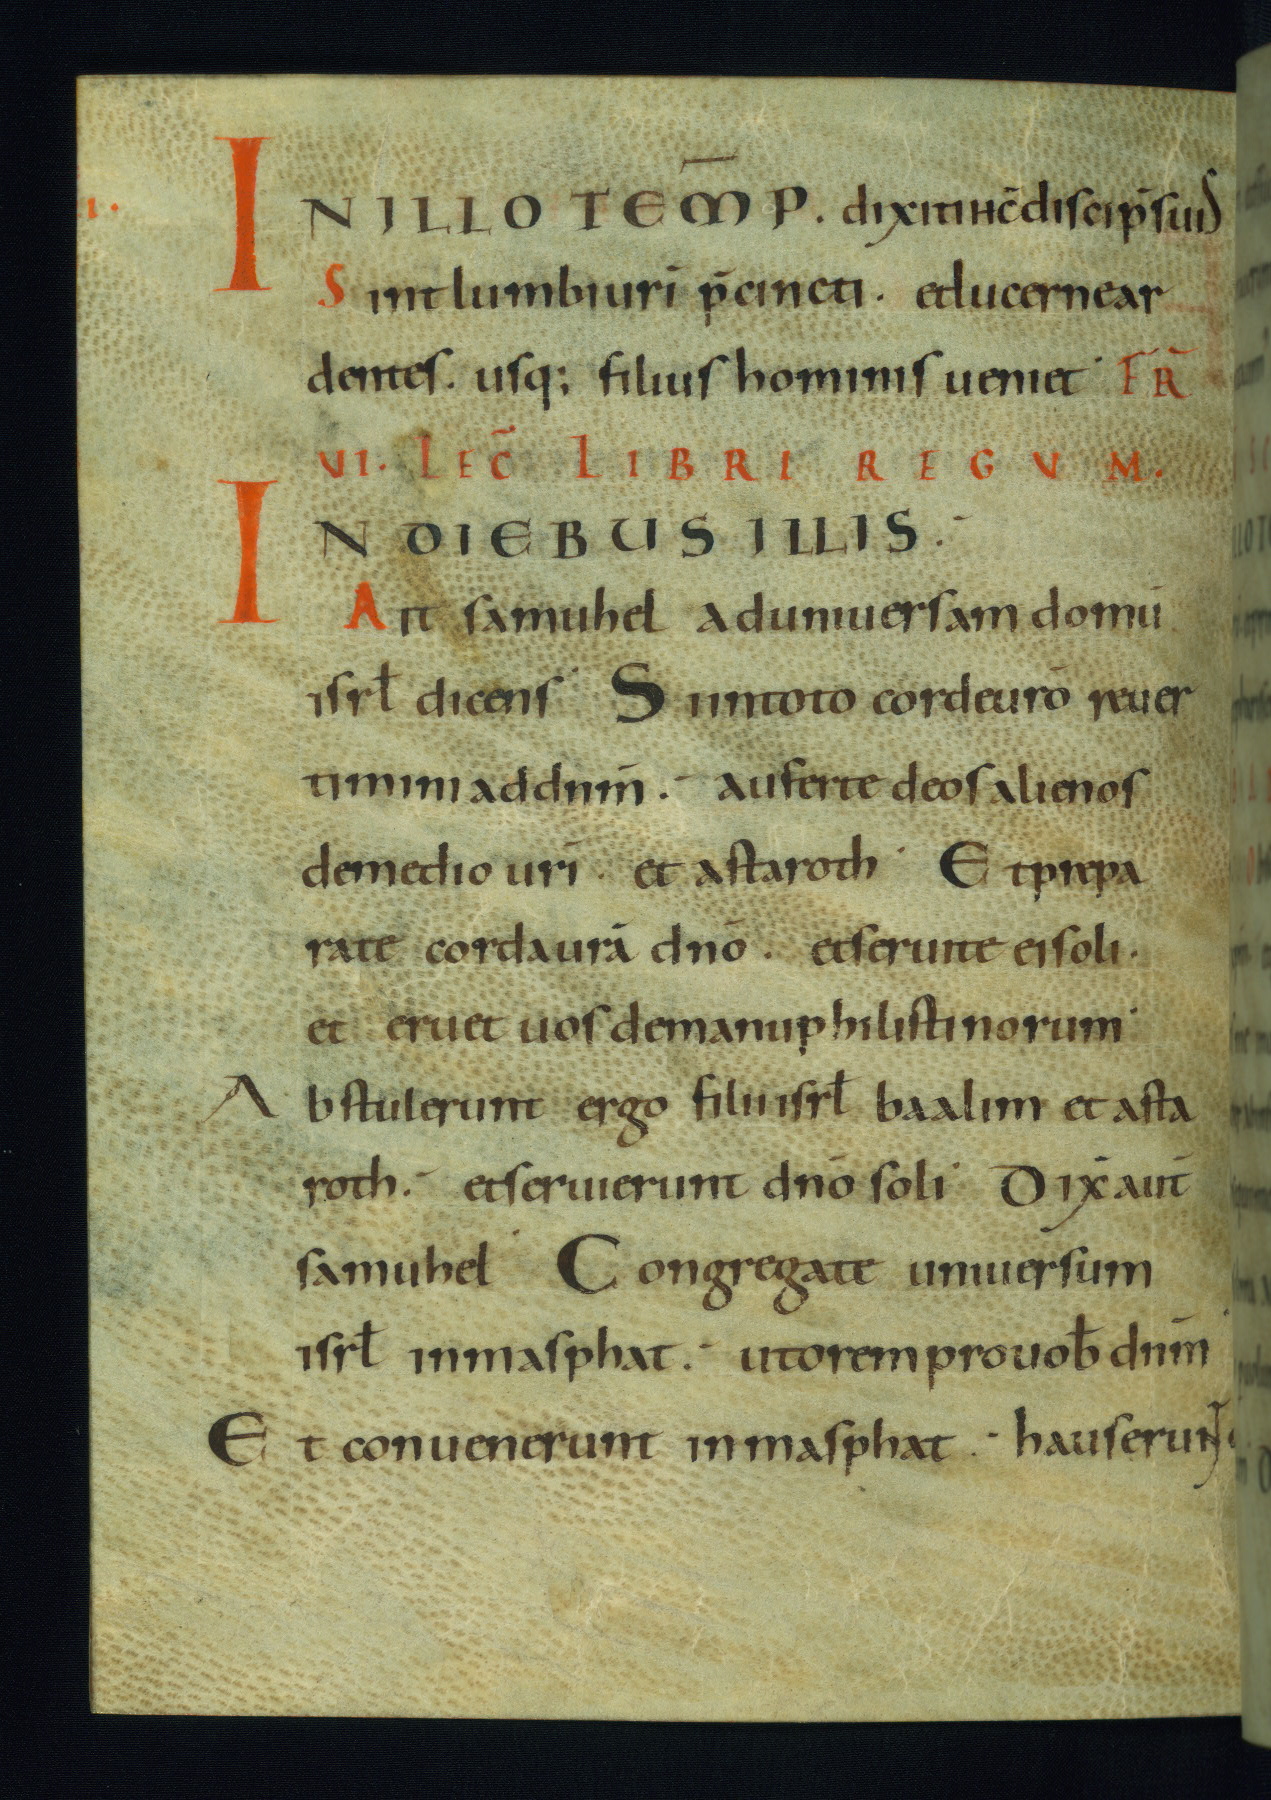 I.
IN ILLO TEMP̄. dixit ihc̄ discip̄ suis
Sint lumbi uri̅ p̄cincti. et lucerne ar
dentes. usq; filius hominis ueniet FR̄
VI. LEC̄ LIBRI REGVM.
IN DIEBUS ILLIS.
Ait samuhel ad uniuersam domū
isrł dicens Si in toto corde uro̅ reuer
timini ad dnm̄. auferte deos alienos
de medio uri̅. et astaroth Et prepa
rate corda urā dnō. et seruite ei soli.
et eruet uos de manu philistinorum
Abstulerunt ergo filii isrł baalim et asta
roth. et seruierunt dnō soli Dix̄ aut̄
samuhel Congregate uniuersum
isrł in masphat. ut orem pro uob̄ dnm̄
Et conuenerunt in masphat. hauserunt